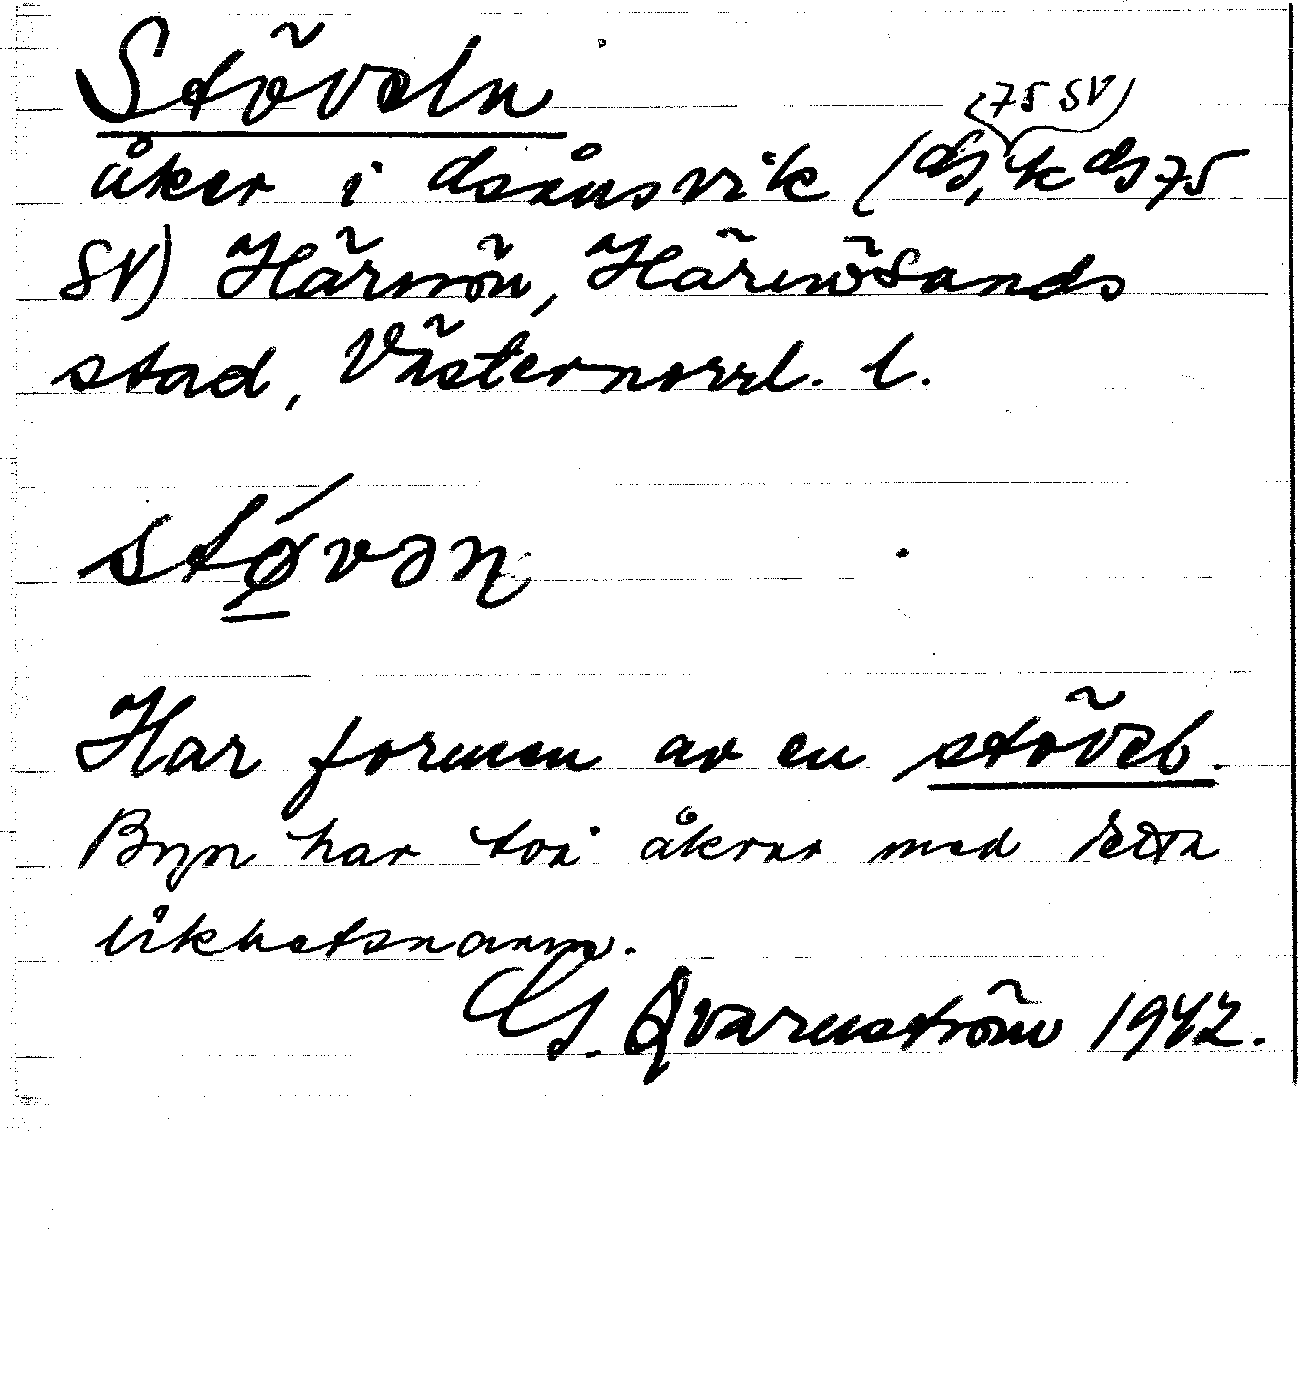 Stöveln
(75 SV)
åker i dsånsvik (dJ, k dJ 75
SV) Härnön, Härnösands
stad, Västernorrl. l.
støvəɳ
Har formen av en stövel.
Byn har två åkrar med detta
likhetsnamn.
G. Qvarnström 1942.